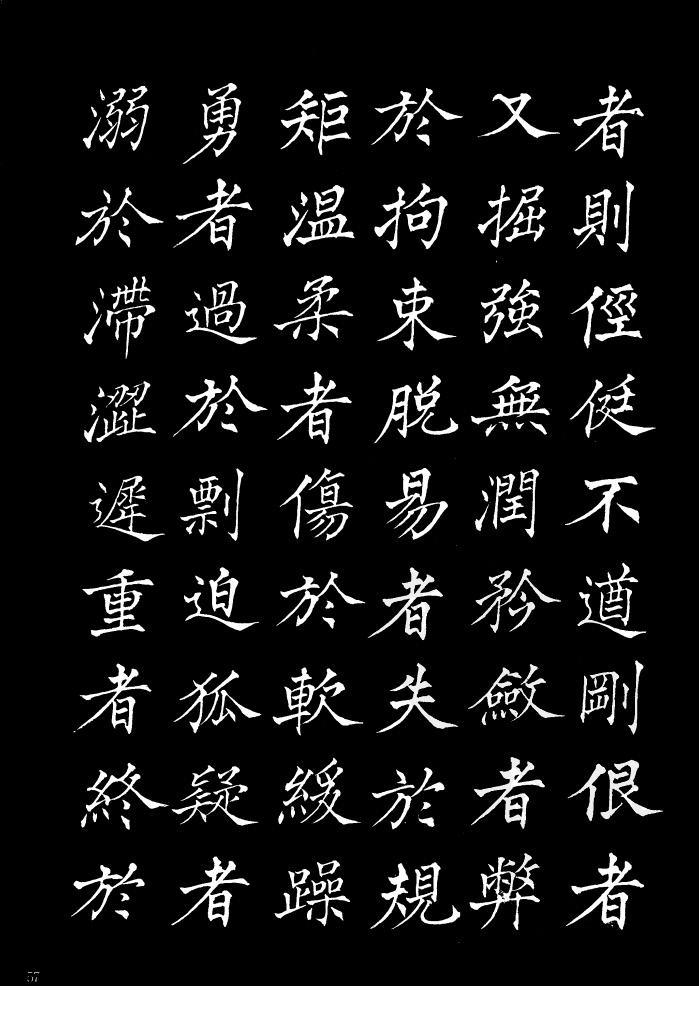 者則俓侹不遒剛佷者
又掘強無潤矜斂者弊
於拘束脱易者失於規
矩温柔者傷於軟緩躁
勇者過於剽迫狐疑者
溺於滯澀遲重者終於
57